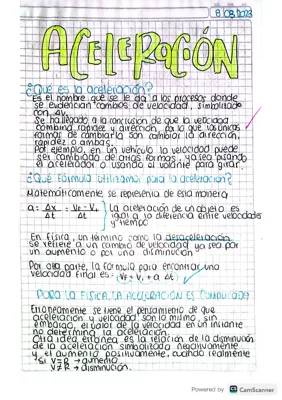 8/08/2023
ACELERACIÓN
¿Qué es la aceleración?
Es el nombre que se le da a los procesos donde
se evidencian cambios de velocidad, simbolizado
con Δv.
Se ha llegado a la conclusion de que la velocidad
combina rapidez y dirección, por lo que las unicas
formas de cambiarla son cambiar la dirección,
rapidez o ambas.
Por ejemplo, en un vehiculo la velocidad puede
ser cambiada de otras formas, ya sea pisando
el acelerador o usando el volante para girar.
¿Qué Fórmula utilizamos para la aceleración?
Matemáticamente, se representa de esta manera
a = Δx = VF - Vi La aceleración de un objeto es
Δt Δt igual a la diferencia entre velocidades
y tiempo
En Física, un término como la desaceleración
se refiere a un cambio de velocidad ya sea por
un aumento o por una disminución
Por otra parte, la fórmula para encontrar una
velocidad final es: VF = Vi + a Δt
PARA LA FISICA, LA ACELERACION ES COMPLICADA
Erroneamente se tiene el pensamiento de que
aceleración y velocidad son lo mismo, sin
embargo, el valor de la velocidad en un instante
no determina la aceleración.
Otra idea erronea es la relación de la disminución
de la aceleración simbolizada negativamente
y el aumento positivamente, cuando realmente
→ aumento
→ Disminución.
Powered by CamScanner